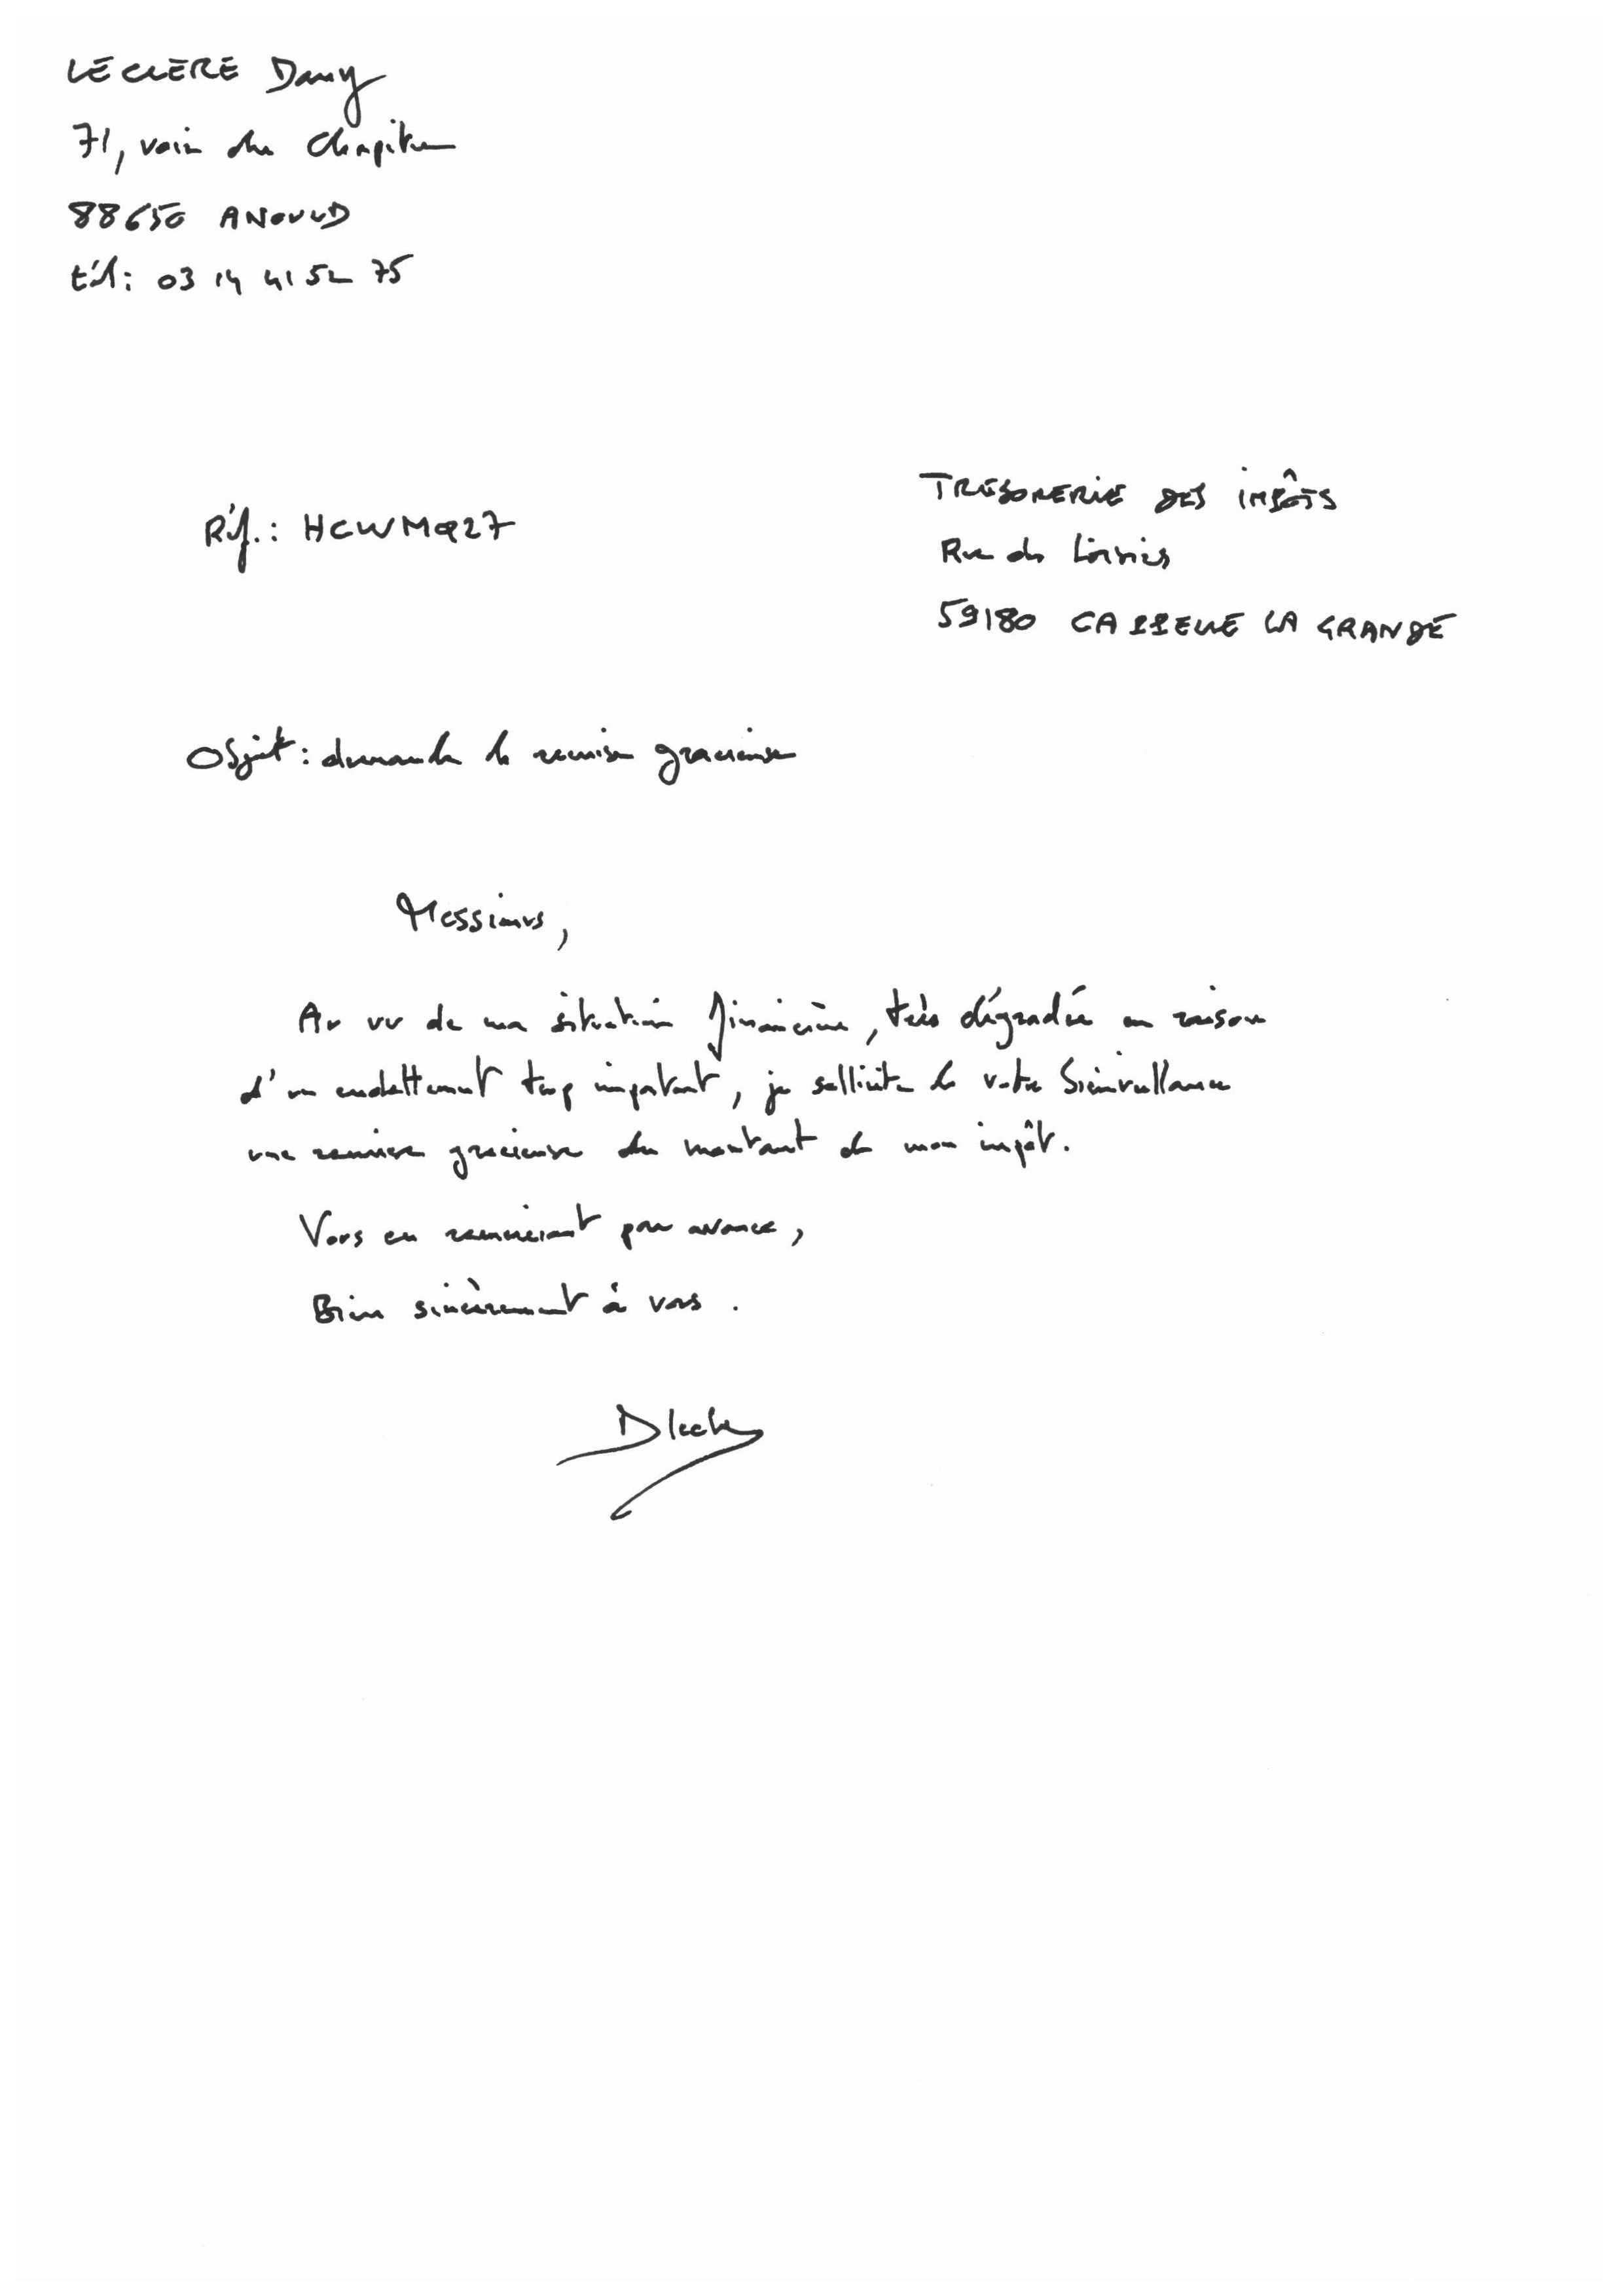 LECLERE Dany
71, voie du Chapitre
88650 ANOULD
tél: 03 14 41 52 75
Réf.: HCWMQ27
TRÉSORERIE DES IMPÔTS
Rue de
59180 CAPPELLE LA GRANDE
Objet: demande de remise gracieuse
Messieurs,
Au vu de ma situation financière, très dégradée en raison
d'un endettement trop important, je sollicite de votre bienveillance
une remise gracieuse du montant de mon impôt.
Vous en remerciant par avance,
Bien sincèrement à vous.